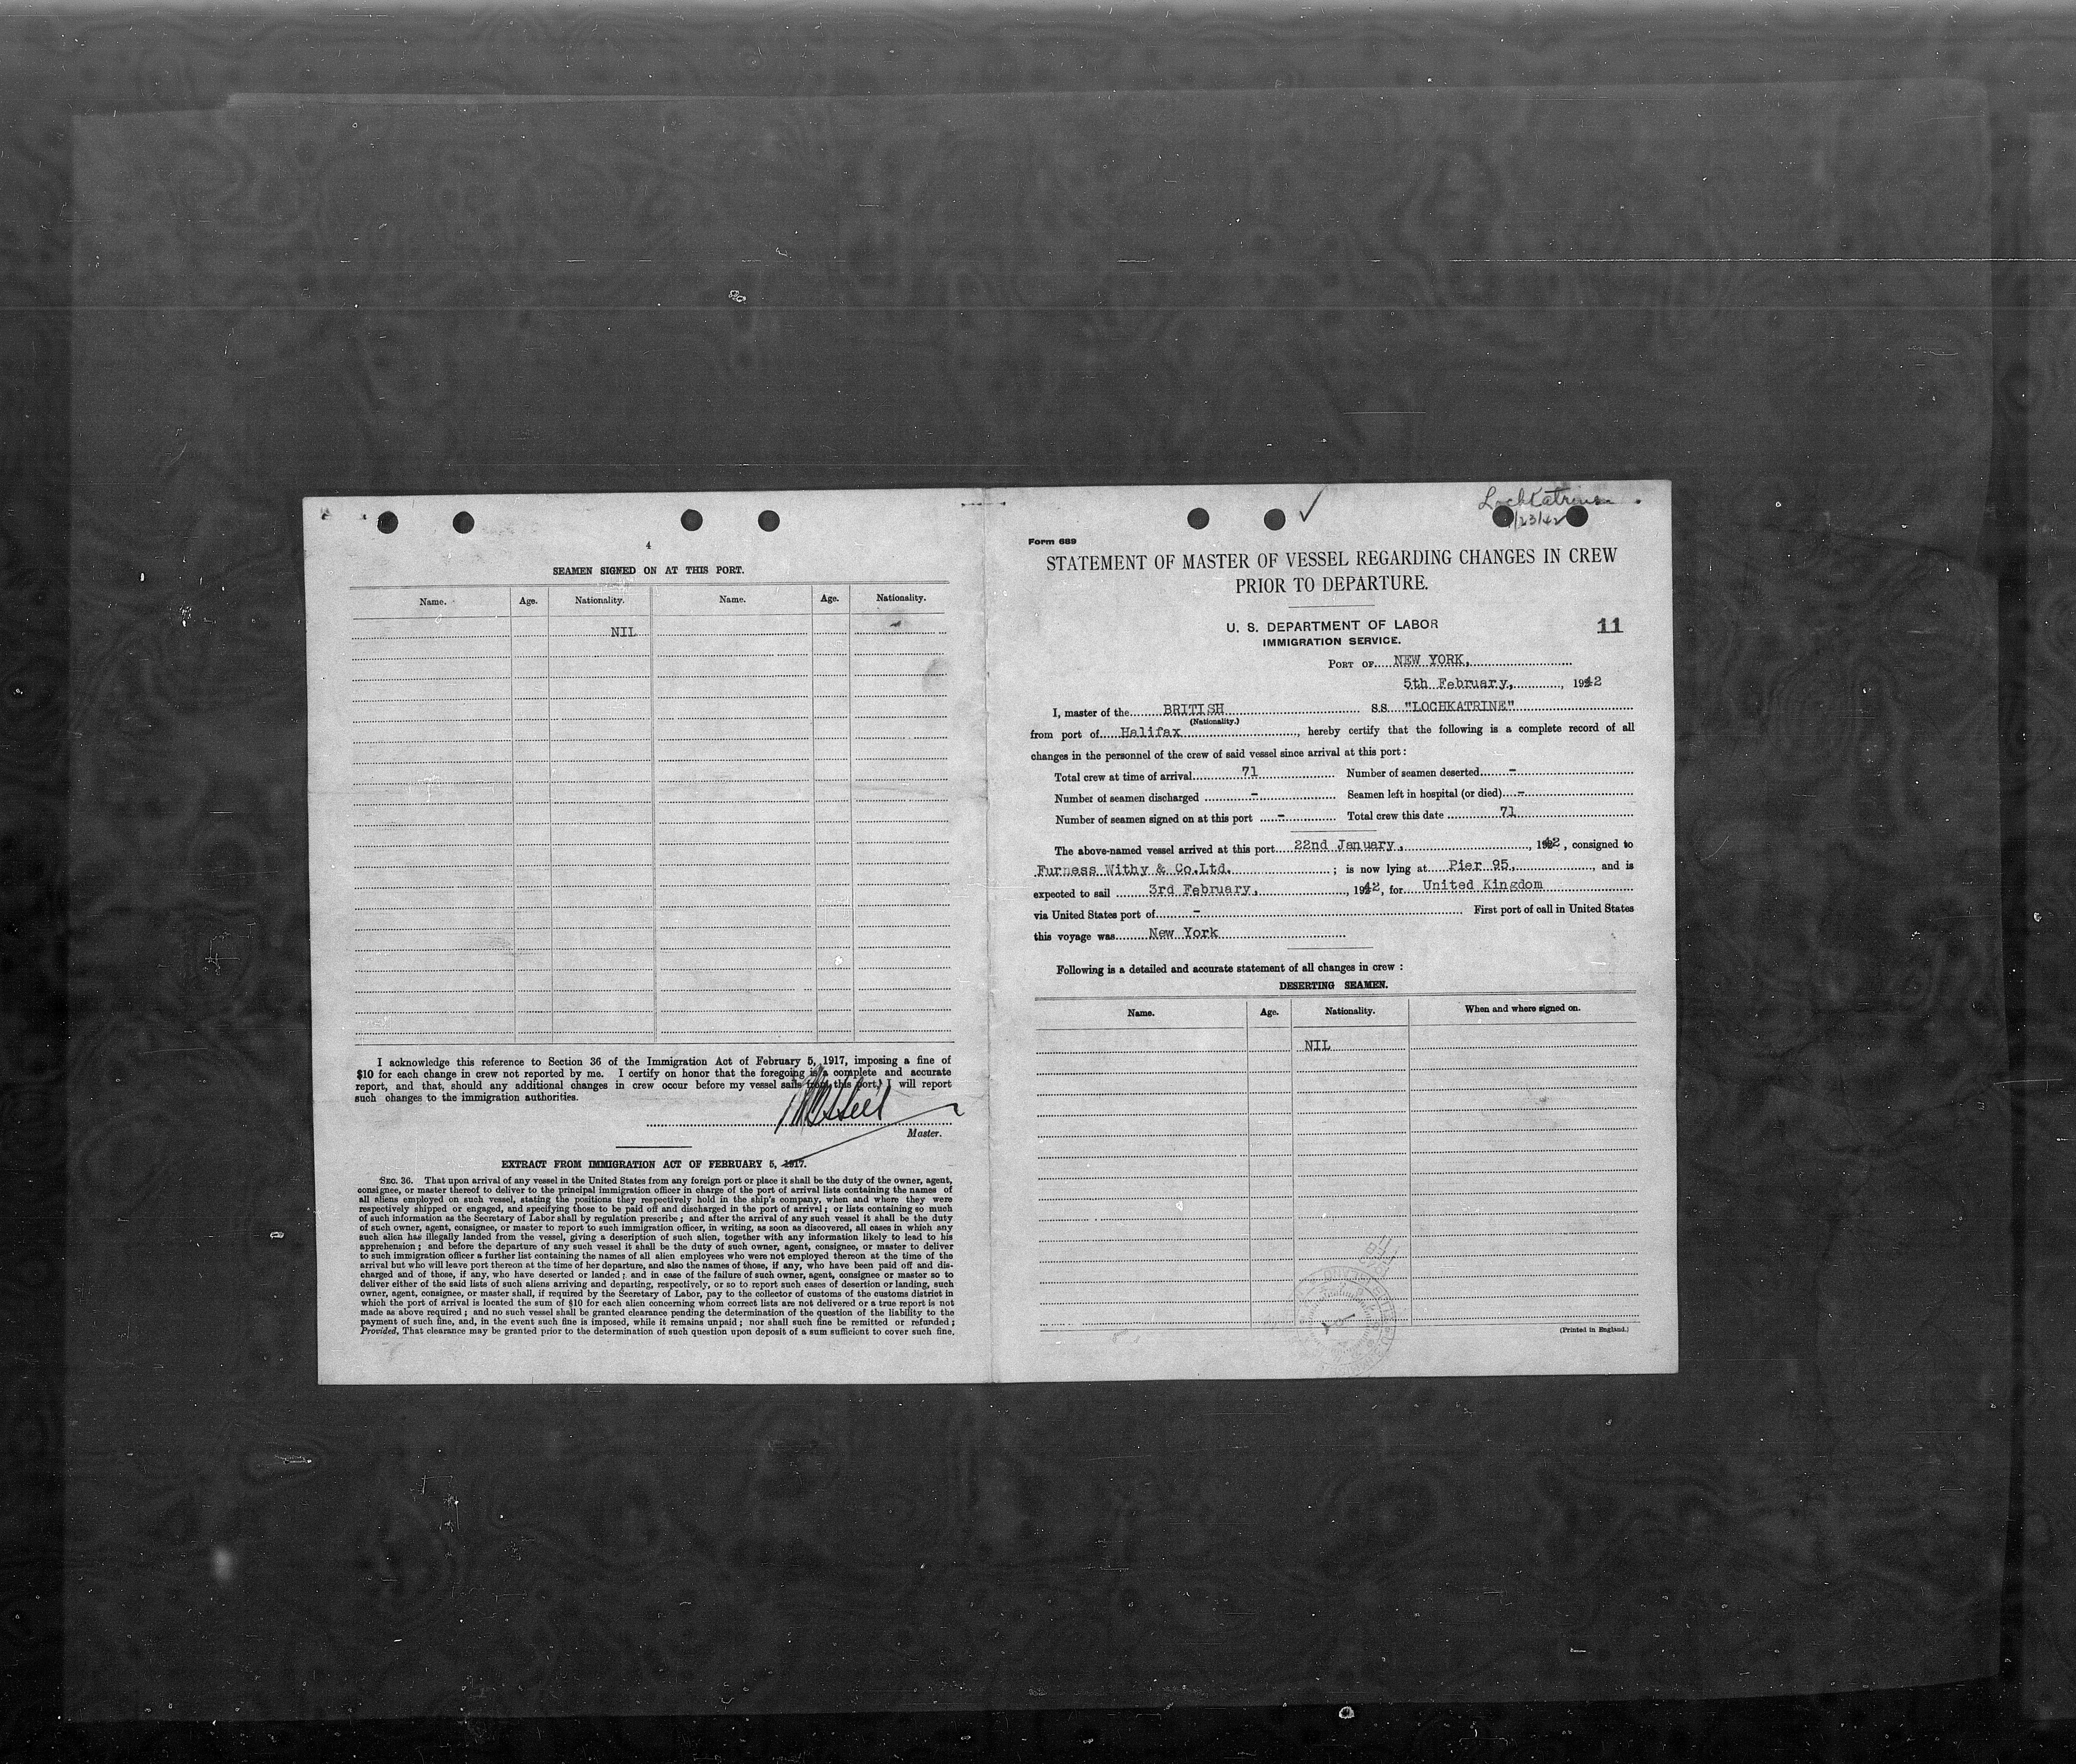 4
SEAMEN SIGNED ON AT THIS PORT.
Name. Age. Nationality. Name. Age. Nationality.
NIL
I acknowledge this reference to Section 36 of the Immigration Act of February 5, 1917, imposing a fine of
$10 for each change in crew not reported by me. I certify on honor that the foregoing is a complete and accurate
report, and that, should any additional changes in crew occur before my vessel sails from this port, I will report
such changes to the immigration authorities.
Master.
EXTRACT FROM IMMIGRATION ACT OF FEBRUARY 5, 1917.
SEC. 36. That upon arrival of any vessel in the United States from any foreign port or place it shall be the duty of the owner, agent,
consignee, or master thereof to deliver to the principal immigration officer in charge of the port of arrival lists containing the names of
all aliens employed on such vessel, stating the positions they respectively hold in the ship's company, when and where they were
respectively shipped or engaged, and specifying those to be paid off and discharged in the port of arrival; or lists containing so much
of such information as the Secretary of Labor shall by regulation prescribe; and after the arrival of any such vessel it shall be the duty
of such owner, agent, consignee, or master to report to such immigration officer, in writing, as soon as discovered, all cases in which any
such alien has illegally landed from the vessel, giving a description of such alien, together with any information likely to lead to his
apprehension; and before the departure of any such vessel it shall be the duty of such owner, agent, consignee, or master to deliver
to such immigration officer a further list containing the names of all alien employees who were not employed thereon at the time of the
arrival but who will leave port thereon at the time of her departure, and also the names of those, if any, who have been paid off and dis-
charged and of those, if any, who have deserted or landed; and in case of the failure of such owner, agent, consignee or master so to
deliver either of the said lists of such aliens arriving and departing, respectively, or so to report such cases of desertion or landing, such
owner, agent, consignee, or master shall, if required by the Secretary of Labor, pay to the collector of customs of the customs district in
which the port of arrival is located the sum of $10 for each alien concerning whom correct lists are not delivered or a true report is not
made as above required; and no such vessel shall be granted clearance pending the determination of the question of the liability to the
payment of such fine, and, in the event such fine is imposed, while it remains unpaid; nor shall such fine be remitted or refunded;
Provided, That clearance may be granted prior to the determination of such question upon deposit of a sum sufficient to cover such fine.
Lochkatrine
1/23/42
Form 689
STATEMENT OF MASTER OF VESSEL REGARDING CHANGES IN CREW
PRIOR TO DEPARTURE.
U. S. DEPARTMENT OF LABOR
IMMIGRATION SERVICE.
11
PORT OF NEW YORK,
5th February, 1942
I, master of the BRITISH S.S. "LOCHKATRINE"
(Nationality.)
from port of Halifax, hereby certify that the following is a complete record of all
changes in the personnel of the crew of said vessel since arrival at this port:
Total crew at time of arrival 71 Number of seamen deserted -
Number of seamen discharged - Seamen left in hospital (or died) -
Number of seamen signed on at this port - Total crew this date 71
The above-named vessel arrived at this port 22nd January, 1942, consigned to
Furness Withy & Co.Ltd. ; is now lying at Pier 95, and is
expected to sail 3rd February, 1942, for United Kingdom
via United States port of - First port of call in United States
this voyage was New York
Following is a detailed and accurate statement of all changes in crew:
DESERTING SEAMEN.
Name. Age. Nationality. When and where signed on.
NIL
(Printed in England.)